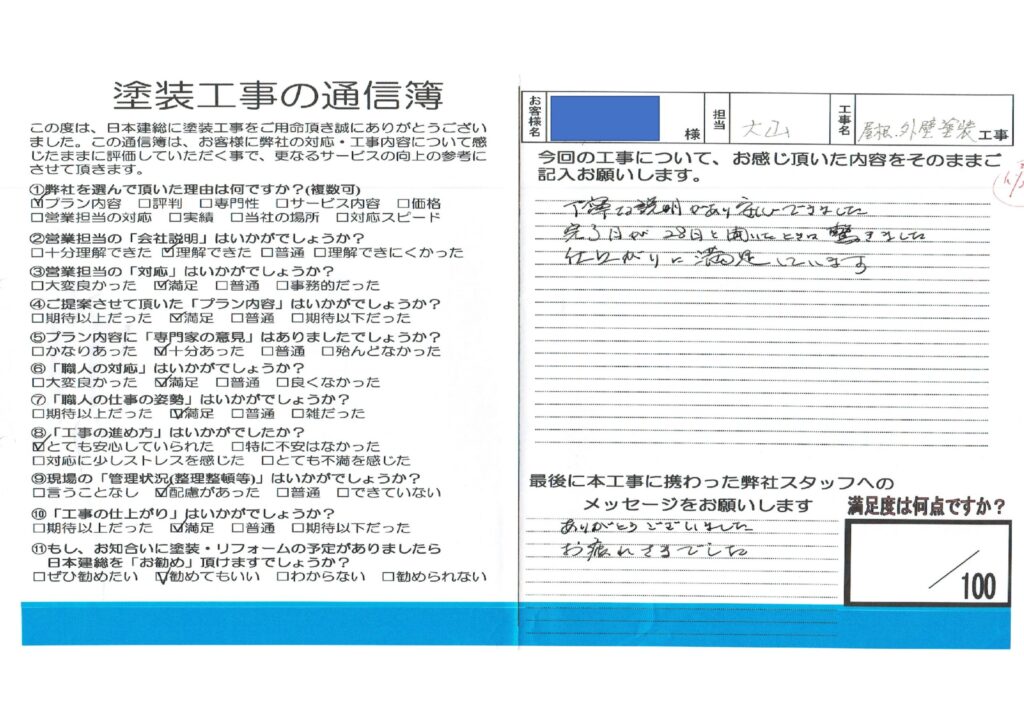 塗装工事の通信簿
この度は、日本建総に塗装工事をご用命頂き誠にありがとうござい
ました。この通信簿は、お客様に弊社の対応・工事内容について感
じたままに評価していただく事で、更なるサービスの向上の参考に
させて頂きます。
①弊社を選んで頂いた理由は何ですか？(複数可)
☑プラン内容 □評判 □専門性 □サービス内容 □価格
□営業担当の対応 □実績 □当社の場所 □対応スピード
②営業担当の「会社説明」はいかがでしょうか？
□十分理解できた ☑理解できた □普通 □理解できにくかった
③営業担当の「対応」はいかがでしょうか？
□大変良かった ☑満足 □普通 □事務的だった
④ご提案させて頂いた「プラン内容」はいかがでしょうか？
□期待以上だった ☑満足 □普通 □期待以下だった
⑤プラン内容に「専門家の意見」はありましたでしょうか？
□かなりあった ☑十分あった □普通 □殆んどなかった
⑥「職人の対応」はいかがでしょうか？
□大変良かった ☑満足 □普通 □良くなかった
⑦「職人の仕事の姿勢」はいかがでしょうか？
□期待以上だった ☑満足 □普通 □雑だった
⑧「工事の進め方」はいかがでしたか？
☑とても安心していられた □特に不安はなかった
□対応に少しストレスを感じた □とても不満を感じた
⑨現場の「管理状況(整理整頓等)」はいかがでしょうか？
□言うことなし ☑配慮があった □普通 □できていない
⑩「工事の仕上がり」はいかがでしょうか？
□期待以上だった ☑満足 □普通 □期待以下だった
⑪もし、お知合いに塗装・リフォームの予定がありましたら
日本建総を「お勧め」頂けますでしょうか？
□ぜひ勧めたい ☑勧めてもいい □わからない □勧められない
お客様名 様 担当 大山 工事名 屋根、外壁塗装工事
今回の工事について、お感じ頂いた内容をそのままご
記入お願いします。
丁寧な説明があり安心できました
完了日が28日と聞いたときは驚きました
仕上がりに満足しています
最後に本工事に携わった弊社スタッフへの
メッセージをお願いします
ありがとうございました
お疲れさまでした
満足度は何点ですか？
／100